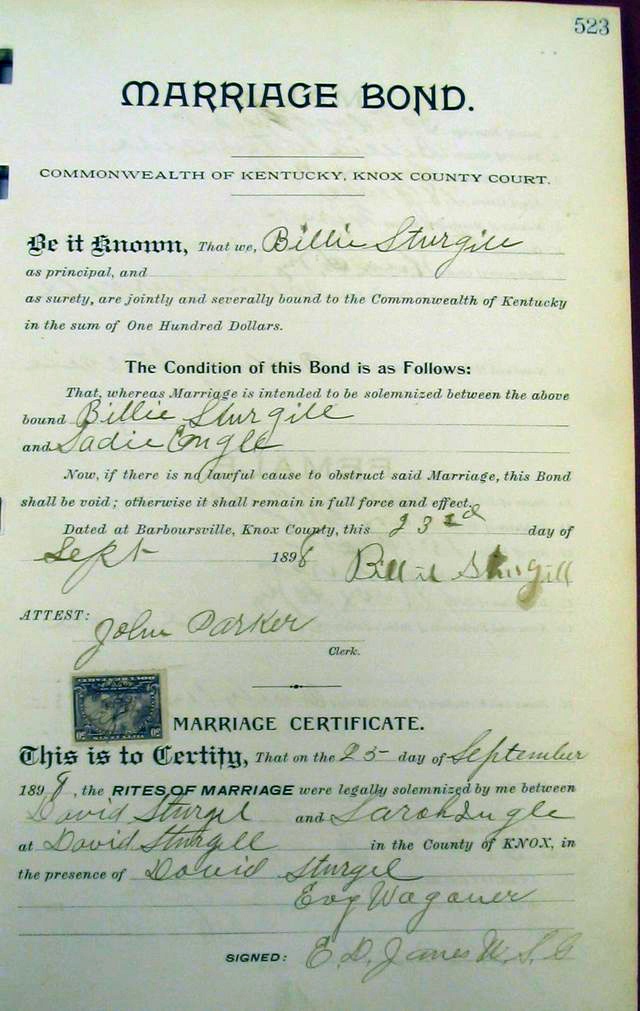 523
MARRIAGE BOND.
COMMONWEALTH OF KENTUCKY, KNOX COUNTY COURT.
Be it Known, That we, Billie Sturgill
as principal, and
as surety, are jointly and severally bound to the Commonwealth of Kentucky
in the sum of One Hundred Dollars.
The Condition of this Bond is as Follows:
That, whereas Marriage is intended to be solemnized between the above
bound Billie Sturgill
and Sadie Engle
Now, if there is no lawful cause to obstruct said Marriage, this Bond
shall be void; otherwise it shall remain in full force and effect.
Dated at Barboursville, Knox County, this 23rd day of
Sept 1898 Billie Sturgill
ATTEST:
John Parker
Clerk.
MARRIAGE CERTIFICATE.
This is to Certify, That on the 25 day of September
1898, the RITES OF MARRIAGE were legally solemnized by me between
David Sturgel and Sarah Ingle
at David Sturgell in the County of KNOX, in
the presence of David Sturgel
Wagoner
SIGNED: E. D. James